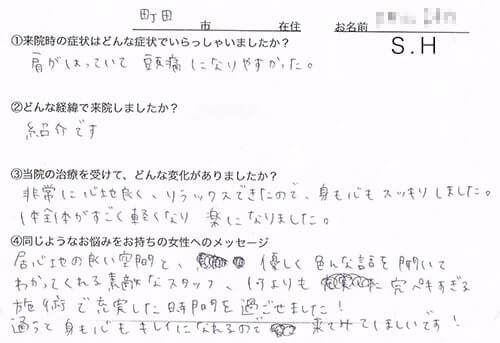 町田 市 在住 お名前
S.H
①来院時の症状はどんな症状でいらっしゃいましたか?
肩がはっていて 頭痛になりやすかった。
②どんな経緯で来院しましたか?
紹介です
③当院の治療を受けて、どんな変化がありましたか?
非常に心地良く、リラックスできたので、身も心もスッキリしました。
体全体がすごく軽くなり 楽になりました。
④同じようなお悩みをお持ちの女性へのメッセージ
居心地の良い空間と、優しく色んな話を聞いて
わかってくれる素敵なスタッフ、何よりも 完ペキすぎる
施術で充実した時間を過ごせました!
通って身も心もキレイになれるので 来てみてほしいです!